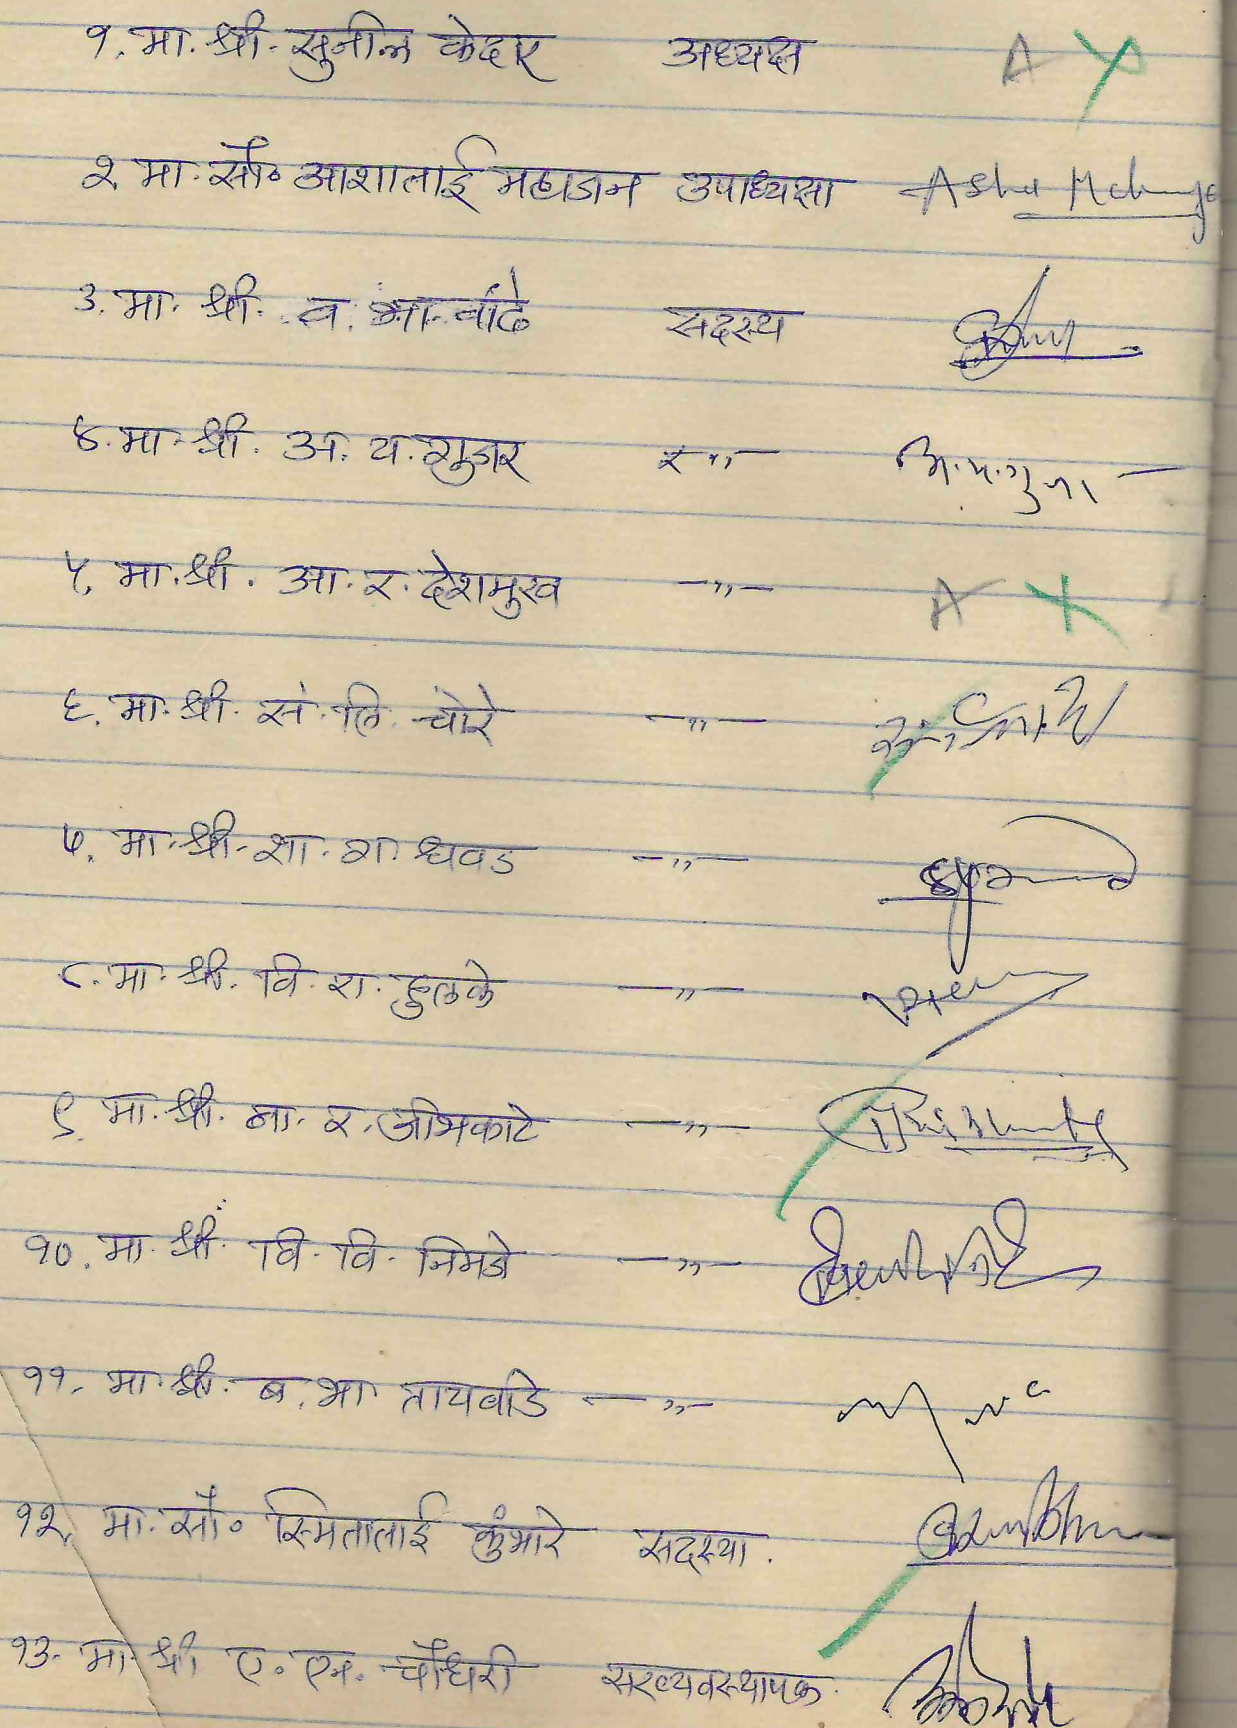 १. मा. श्री. सुनील केदार अध्यक्ष A
२. मा. सौ॰ आशाताई महाजन उपाध्यक्षा Asha
३. मा. श्री. व. भा. वांढे सदस्य
४. मा. श्री. अ. य. गुजर —"—
५. मा. श्री. आ. र. देशमुख —"— A
६. मा. श्री. सं. लि. चोरे —"—
७. मा. श्री. शा. रा. धवड —"—
८. मा. श्री. वि. रा. हुलके —"—
९. मा. श्री. ना. र. जीभकाटे —"—
१०. मा. श्री. वि. वि. निमजे —"—
११. मा. श्री. ब. भा. तायवाडे —"—
१२. मा. सौ॰ स्मिताताई कुंभारे सदस्या.
१३. मा. श्री ए॰ एन॰ चौधरी सरव्यवस्थापक